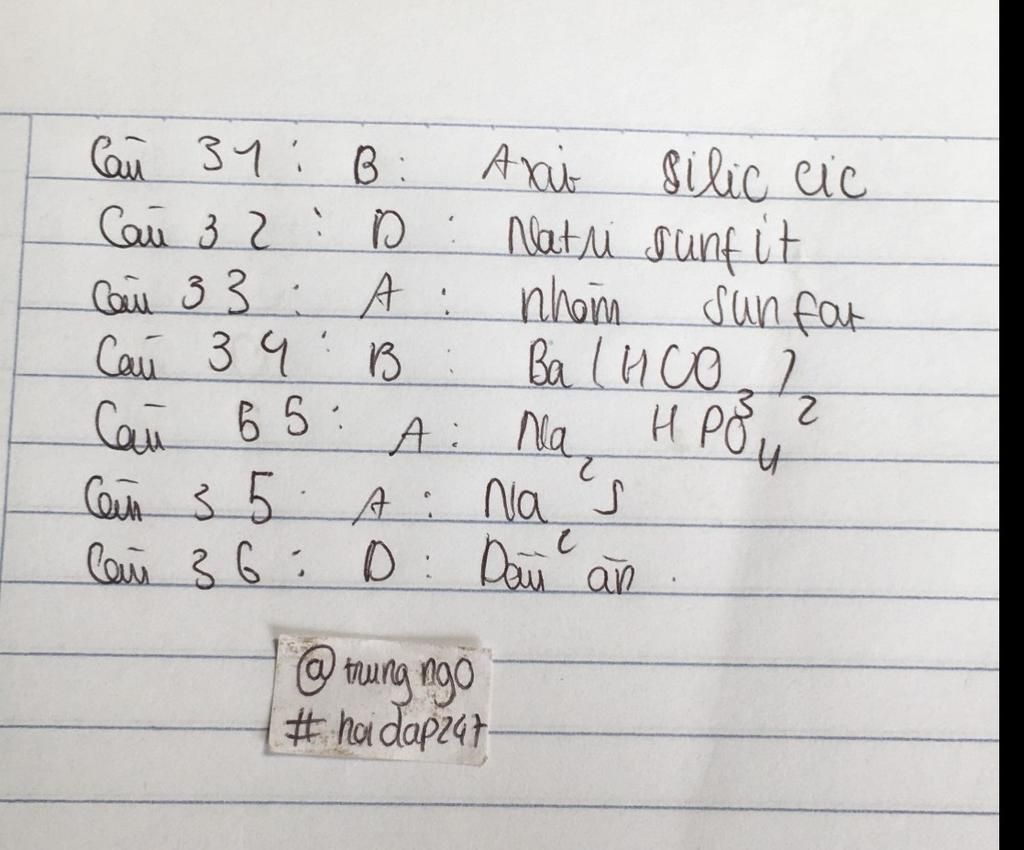 Câu 31 : B : Axit silic cic
Câu 32 : D : Natri sunfit
Câu 33 : A : nhôm sunfat
Câu 34 : B : Ba(HCO₃)₂
Câu 65 : A : Na₂HPO₄
Câu 35 : A : Na₂S
Câu 36 : D : Dầu ăn.
@trung ngo
#hoidap247